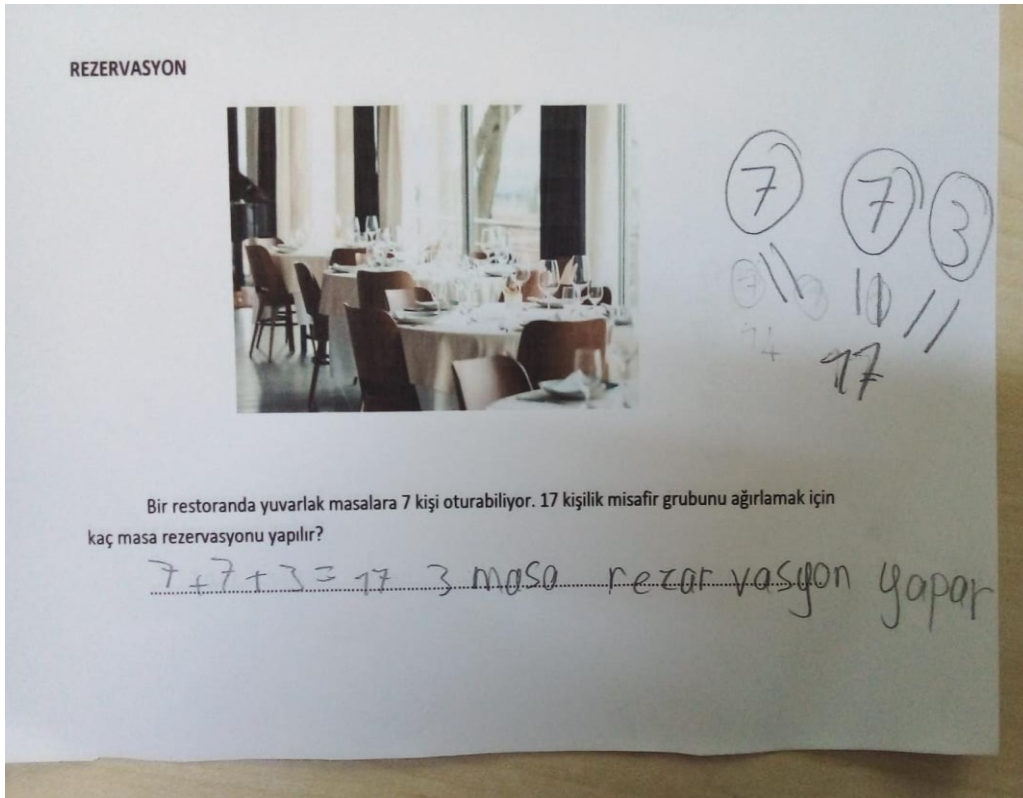 REZERVASYON
7 7 3
17
Bir restoranda yuvarlak masalara 7 kişi oturabiliyor. 17 kişilik misafir grubunu ağırlamak için
kaç masa rezervasyonu yapılır?
7+7+3=17 3 masa rezarvasyon yapar